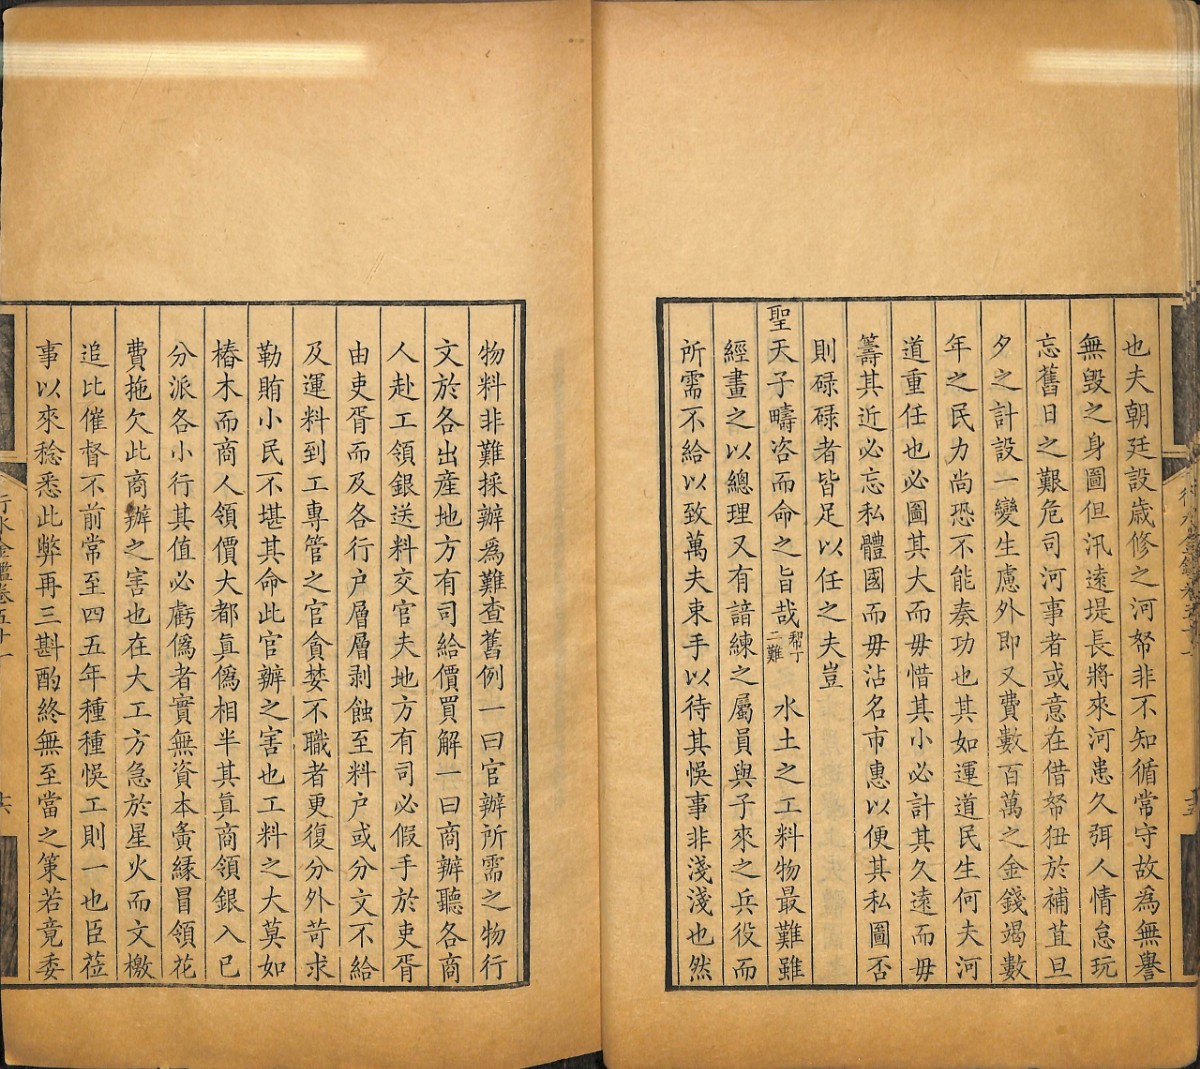 也夫朝廷設歲修之河帑非不知循常守故為無譽
無毀之身圖但汛遠堤長將來河患久弭人情怠玩
忘舊日之艱危司河事者或意在借帑狃於補苴旦
夕之計設一變生慮外即又費數百萬之金錢竭數
年之民力尚恐不能奏功也其如運道民生何夫河
道重任也必圖其大而毋惜其小必計其久遠而毋
籌其近必忘私體國而毋沽名市惠以便其私圖否
則碌碌者皆足以任之夫豈
聖天子疇咨而命之旨哉 水土之工料物最難雖
經畫之以總理又有諳練之屬員與子來之兵役而
所需不給以致萬夫束手以待其悞事非淺淺也然
物料非難採辦爲難查舊例一曰官辦所需之物行
文於各出產地方有司給價買解一曰商辦聽各商
人赴工領銀送料交官夫地方有司必假手於吏胥
由吏胥而及各行户層層剥蝕至料户或分文不給
及運料到工專管之官貪婪不職者更復分外苛求
勒賄小民不堪其命此官辦之害也工料之大莫如
樁木而商人領價大都眞僞相半其眞商領銀入已
分派各小行其值必虧僞者實無資本夤緣冒領花
費拖欠此商辦之害也在大工方急於星火而文檄
追比催督不前常至四五年種種悞工則一也臣莅
事以來稔悉此弊再三斟酌終無至當之策若竟委
行水金鑑卷五十一